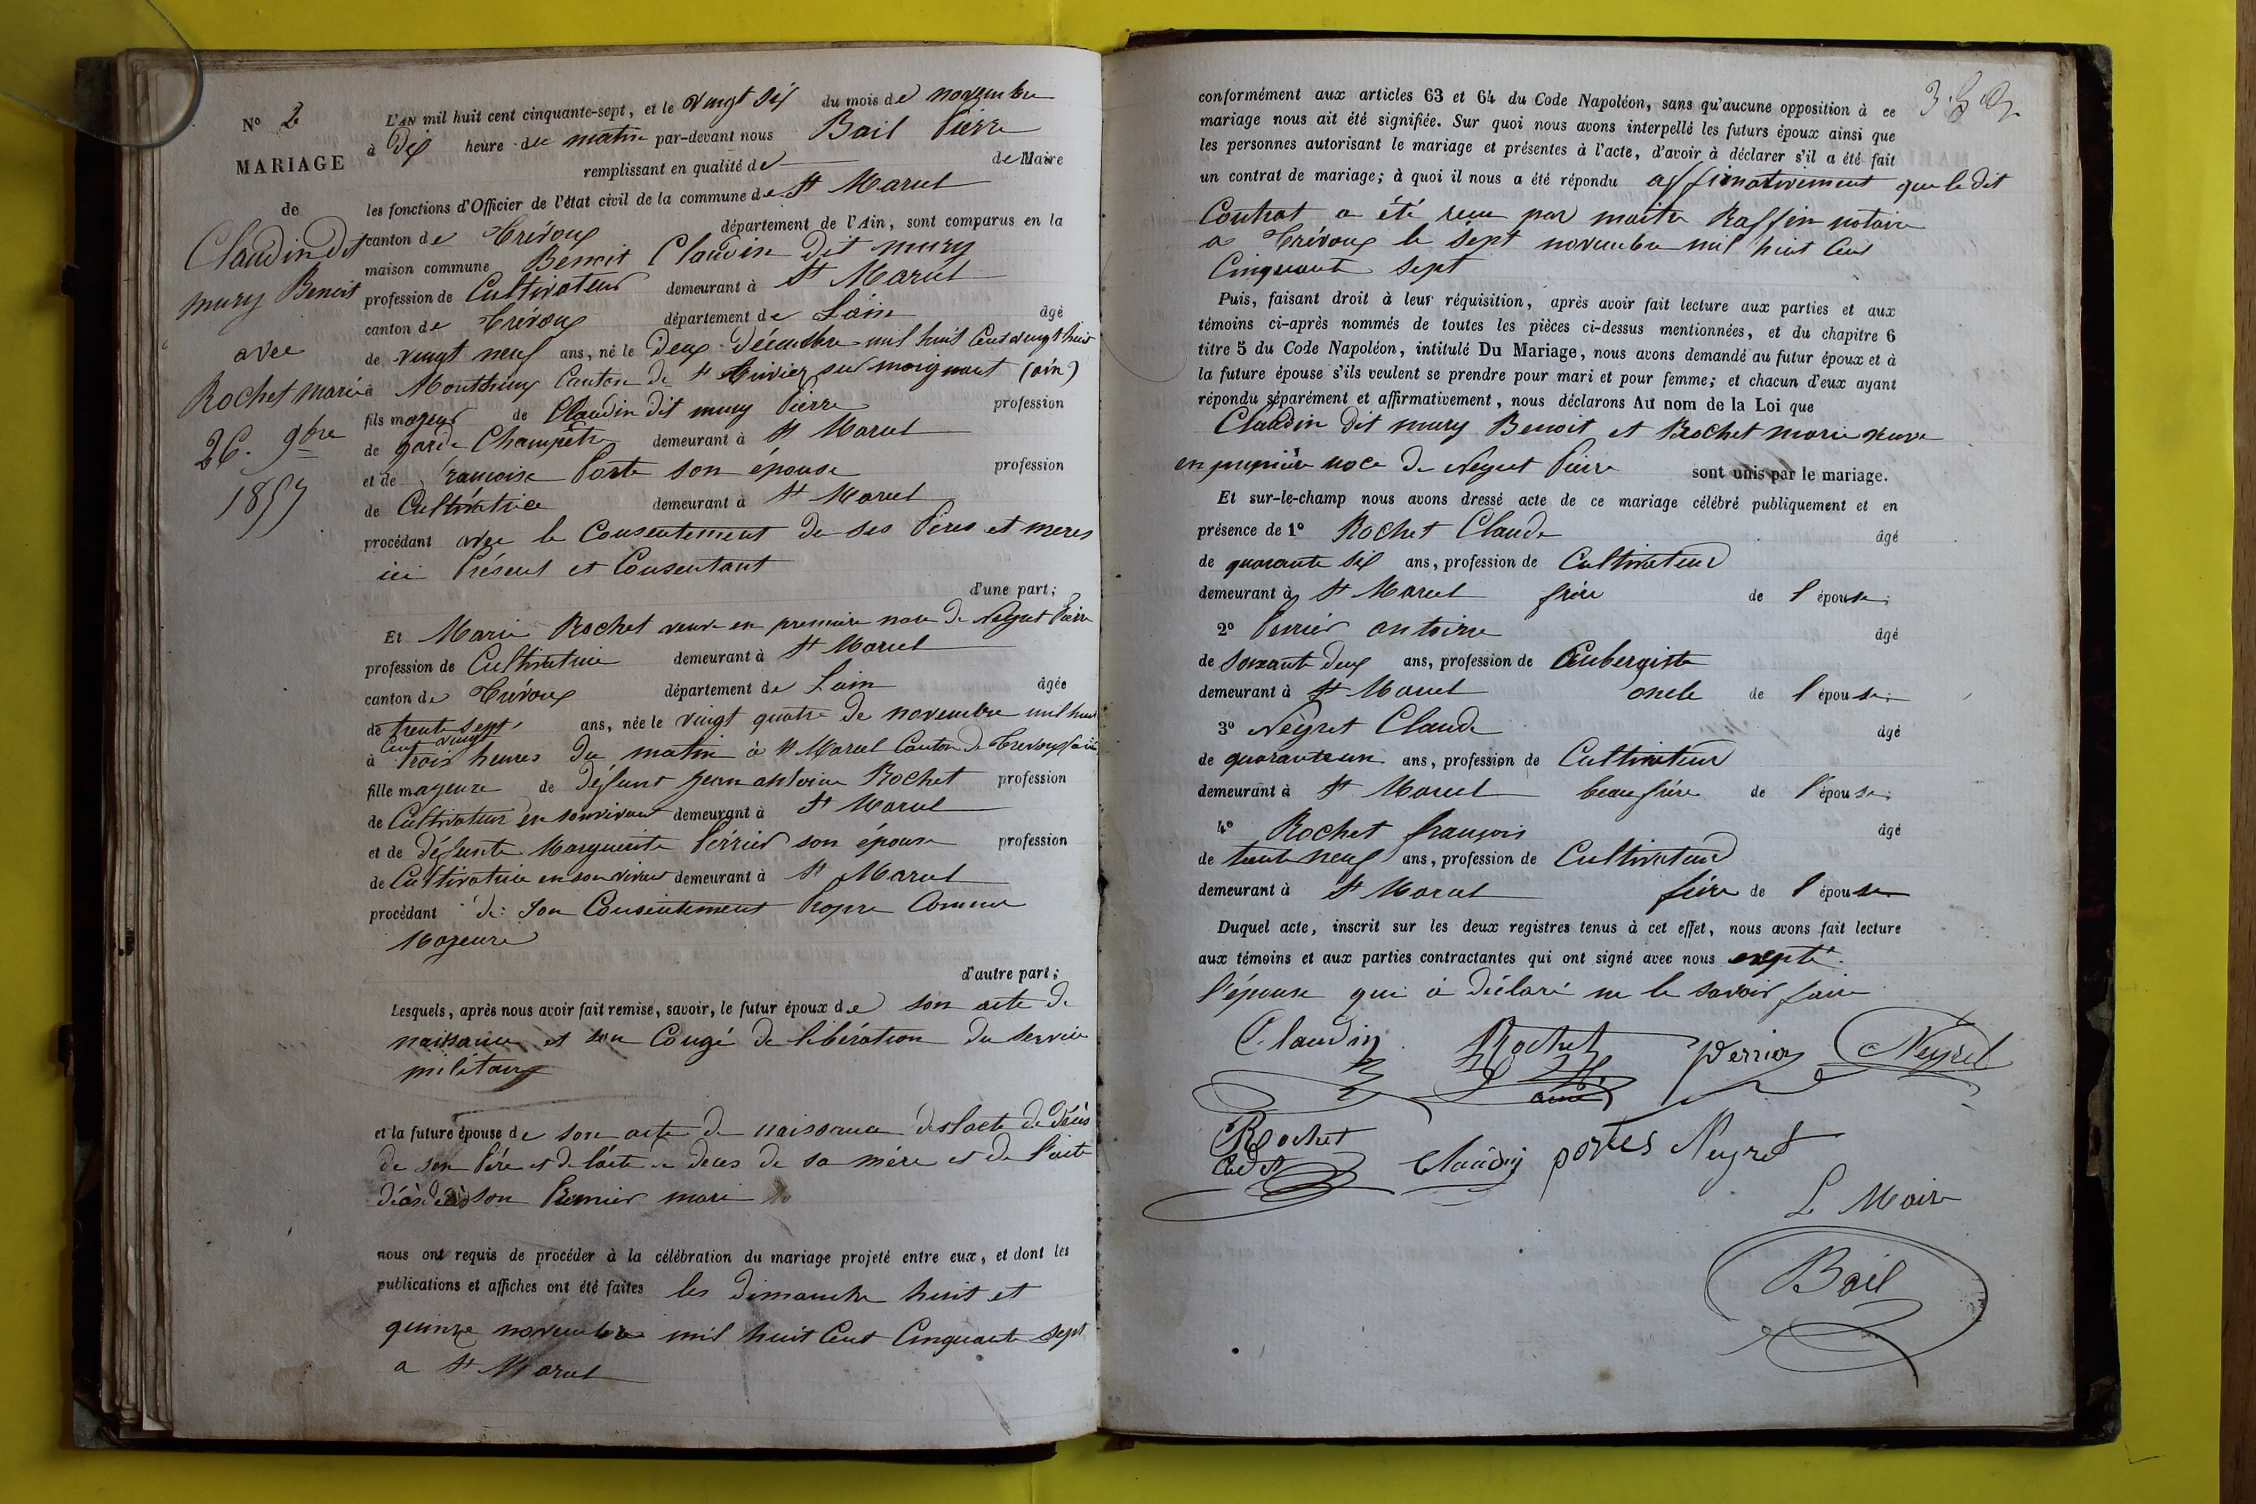 N° 2
MARIAGE
de
Claudin dit
mury Benoit
avec
Rochet marie
26. 9bre
1857
L'AN mil huit cent cinquante-sept, et le vingt six du mois de novembre
à dix heure du matin par-devant nous Bail Pierre
remplissant en qualité de de Maire
les fonctions d'Officier de l'état civil de la commune de St Marcel
canton de Trévoux département de l'Ain, sont comparus en la
maison commune Benoit Claudin dit mury
profession de Cultivateur demeurant à St Marcel
canton de Trévoux département de Lain âgé
de vingt neuf ans, né le deux décembre mil huit cent vingt huit
à Monthieux Canton de St trivier sur moignant (ain)
fils majeur de Claudin dit mury Pierre profession
de garde Champêtre demeurant à St Marcel
et de françoise Porte son épouse profession
de Cultivatrice demeurant à St Marcel
procédant avec le Consentement de ses Pères et meres
ici Présent et Consentant
d'une part;
Et Marie Rochet veuve en premiere noce de Neyret Pierre
profession de Cultivatrice demeurant à St Marcel
canton de Trévoux département de Lain âgée
de trente sept ans, née le vingt quatre de novembre mil huit
cent vingt
à trois heures du matin à St Marcel Canton de Trevoux (ain)
fille majeure de défunt jean antoine Rochet profession
de Cultivateur en son vivant demeurant à St Marcel
et de défunte Marguerite Périer son épouse profession
de Cultivatrice en son vivant demeurant à St Marcel
procédant de son Consentement Propre Comme
Majeure
d'autre part;
Lesquels, après nous avoir fait remise, savoir, le futur époux de son acte de
naissance et son Congé de libération du service
militaire
et la future épouse de son acte de naissance de l'acte de décès
de son Père et de l'acte de deces de sa mère et de l'acte
décès de son Premier mari
nous ont requis de procéder à la célébration du mariage projeté entre eux, et dont les
publications et affiches ont été faites les dimanche huit et
quinze novembre mil huit Cent Cinquante sept
a St Marcel
conformément aux articles 63 et 64 du Code Napoléon, sans qu'aucune opposition à ce
mariage nous ait été signifiée. Sur quoi nous avons interpellé les futurs époux ainsi que
les personnes autorisant le mariage et présentes à l'acte, d'avoir à déclarer s'il a été fait
un contrat de mariage; à quoi il nous a été répondu affirmativement que le dit
Contrat a été reçu par maitre Raffin notaire
a Trévoux le sept novembre mil huit Cent
Cinquante sept
Puis, faisant droit à leur réquisition, après avoir fait lecture aux parties et aux
témoins ci-après nommés de toutes les pièces ci-dessus mentionnées, et du chapitre 6
titre 5 du Code Napoléon, intitulé Du Mariage, nous avons demandé au futur époux et à
la future épouse s'ils veulent se prendre pour mari et pour femme; et chacun d'eux ayant
répondu séparément et affirmativement, nous déclarons Au nom de la Loi que
Claudin dit mury Benoit et Rochet marie veuve
en première noce de Neyret Pierre sont unis par le mariage.
Et sur-le-champ nous avons dressé acte de ce mariage célébré publiquement et en
présence de 1° Rochet Claude âgé
de quarante six ans, profession de Cultivateur
demeurant à St Marcel frère de l'épouse;
2° Perrier antoine âgé
de soixante deux ans, profession de Aubergiste
demeurant à St Marcel oncle de l'épouse;
3° Neyret Claude âgé
de quarante un ans, profession de Cultivateur
demeurant à St Marcel beau frère de l'épouse;
4° Rochet françois âgé
de trente neuf ans, profession de Cultivateur
demeurant à St Marcel frère de l'épouse
Duquel acte, inscrit sur les deux registres tenus à cet effet, nous avons fait lecture
aux témoins et aux parties contractantes qui ont signé avec nous excepté
l'épouse qui a déclaré ne le savoir faire
Claudin Rochet perrier Neyret
ainé
Rochet
cadet Claudin portes Neyret
Le Maire
Bail